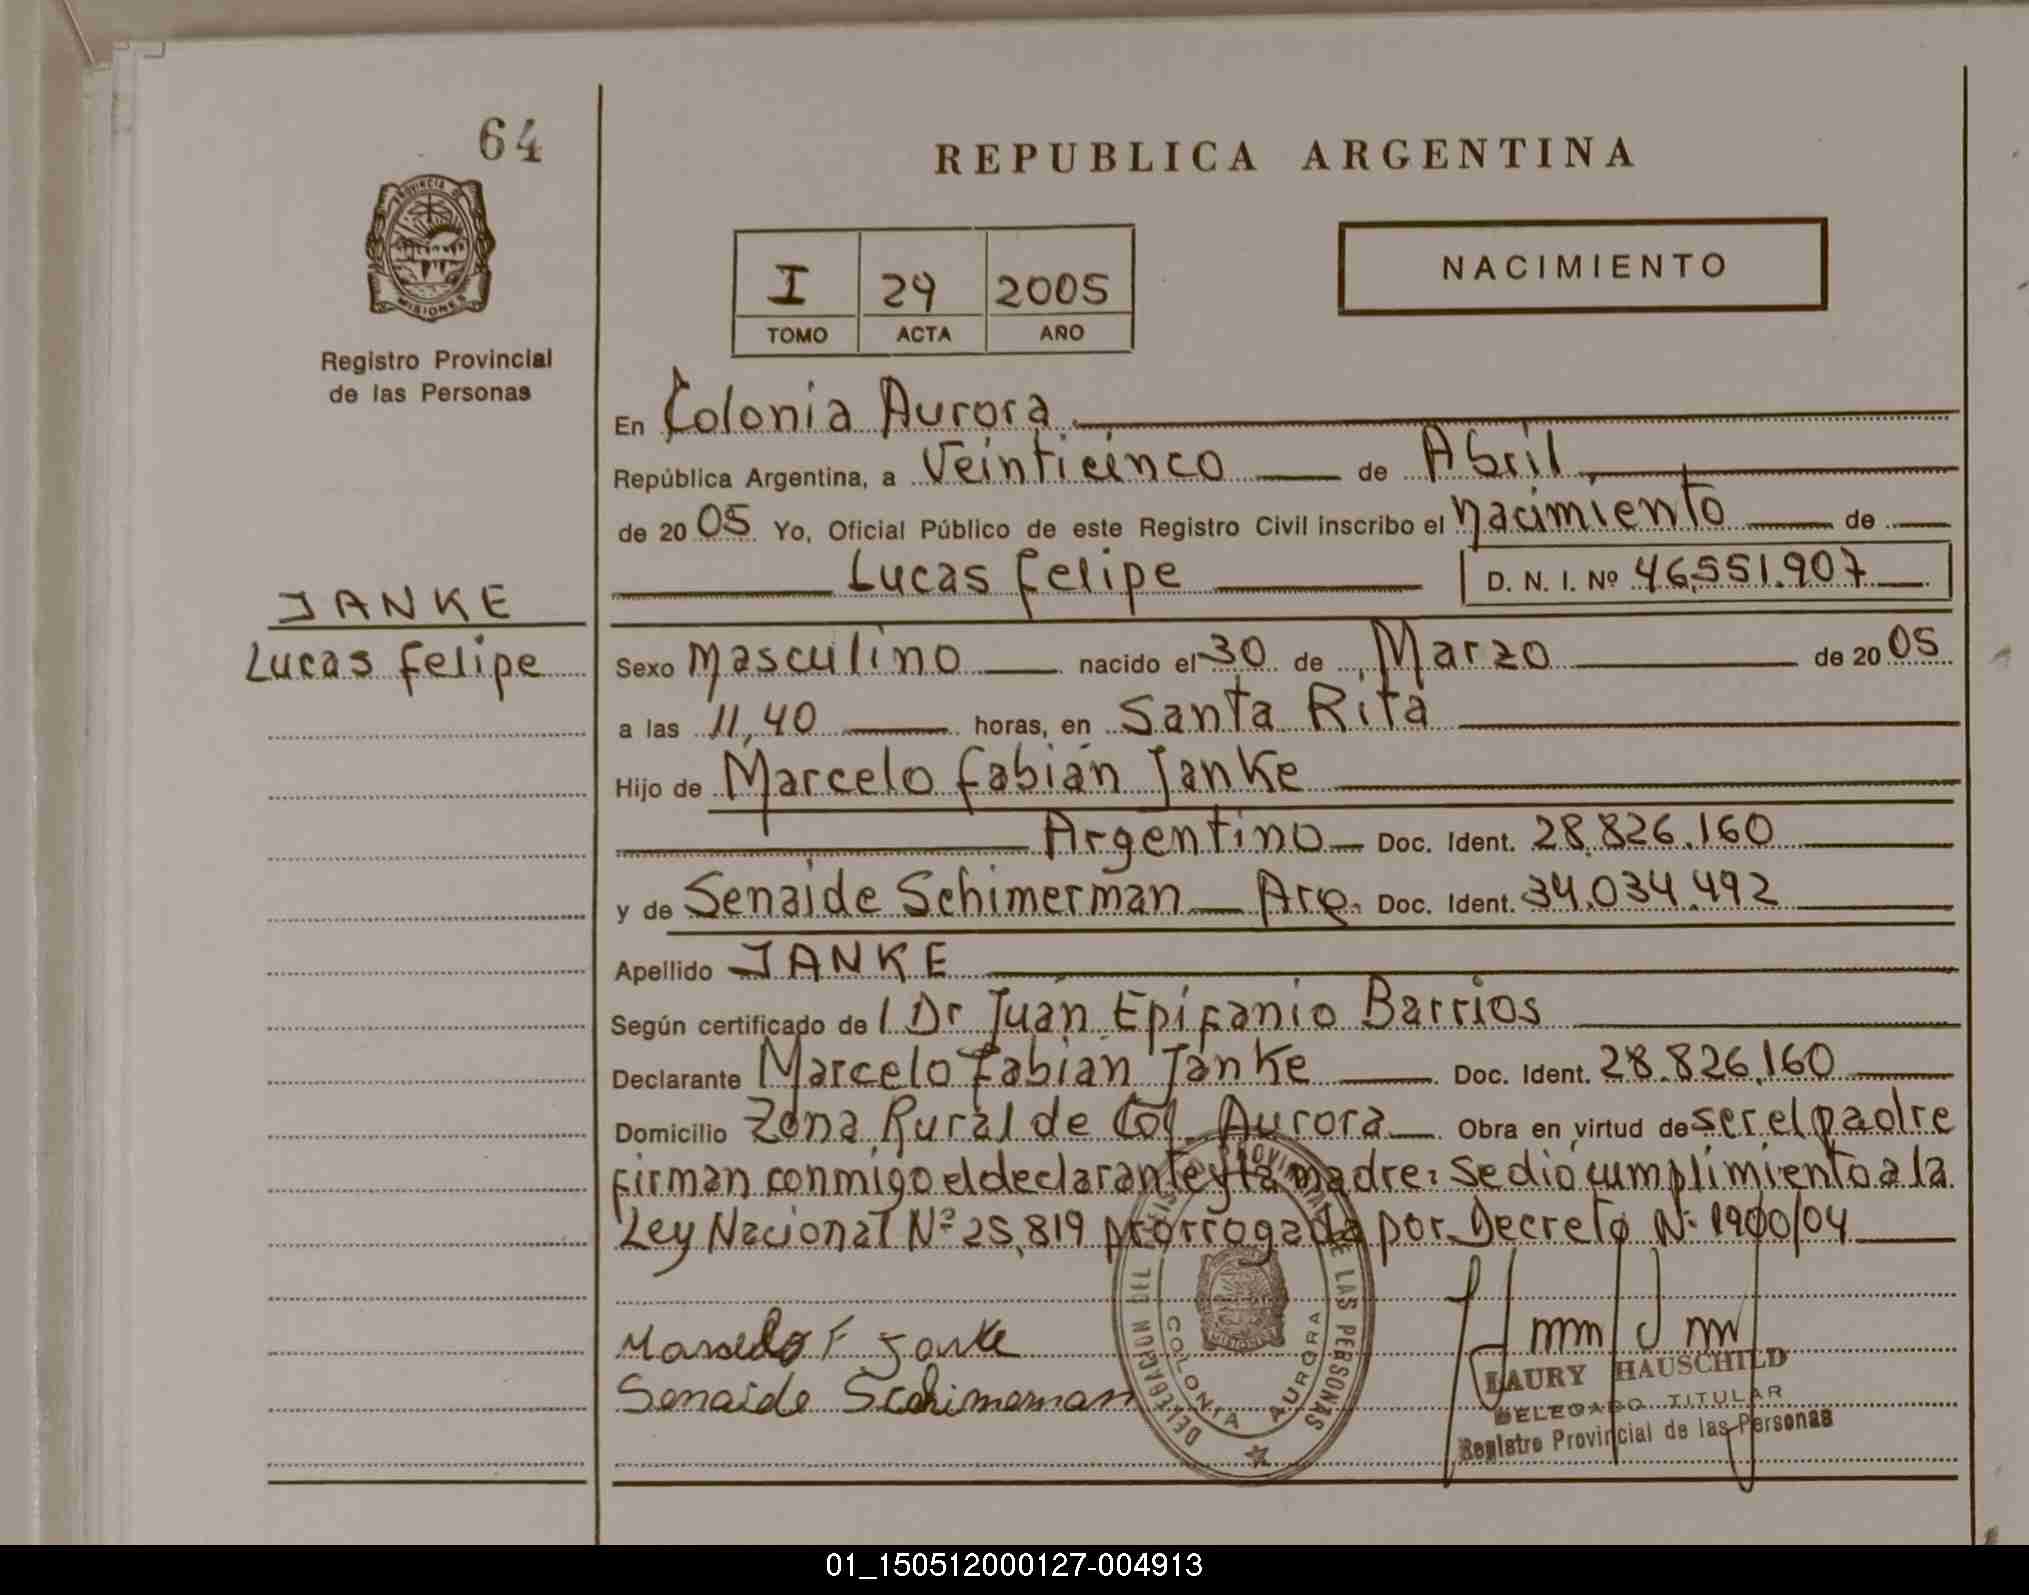 64
REPUBLICA ARGENTINA
PROVINCIA DE
MISIONES
I 29 2005
TOMO ACTA AÑO
NACIMIENTO
Registro Provincial
de las Personas
En Colonia Aurora
República Argentina, a Veinticinco de Abril
de 2005 Yo, Oficial Público de este Registro Civil inscribo el nacimiento de
Lucas Felipe D. N. I. Nº 46,551.907
JANKE
Lucas Felipe
Sexo Masculino nacido el 30 de Marzo de 2005
a las 11,40 horas, en Santa Rita
Hijo de Marcelo Fabián Janke
Argentino Doc. Ident. 28.826.160
y de Senaide Schimerman Arg. Doc. Ident. 34.034.492
Apellido JANKE
Según certificado de l Dr Juan Epifanio Barrios
Declarante Marcelo Fabián Janke Doc. Ident. 28.826.160
Domicilio Zona Rural de Col. Aurora Obra en virtud de ser el padre
firman conmigo el declarante y la madre: Se dió cumplimiento a la
Ley Nacional Nº 25,819 prorrogada por Decreto Nº 1900/04
Marcelo F Janke
Senaide Scohimerman
DELEGACION DEL REGISTRO PROVINCIAL DE LAS PERSONAS
COLONIA AURORA
LAURY HAUSCHILD
DELEGADO TITULAR
Registro Provincial de las Personas
01_150512000127-004913